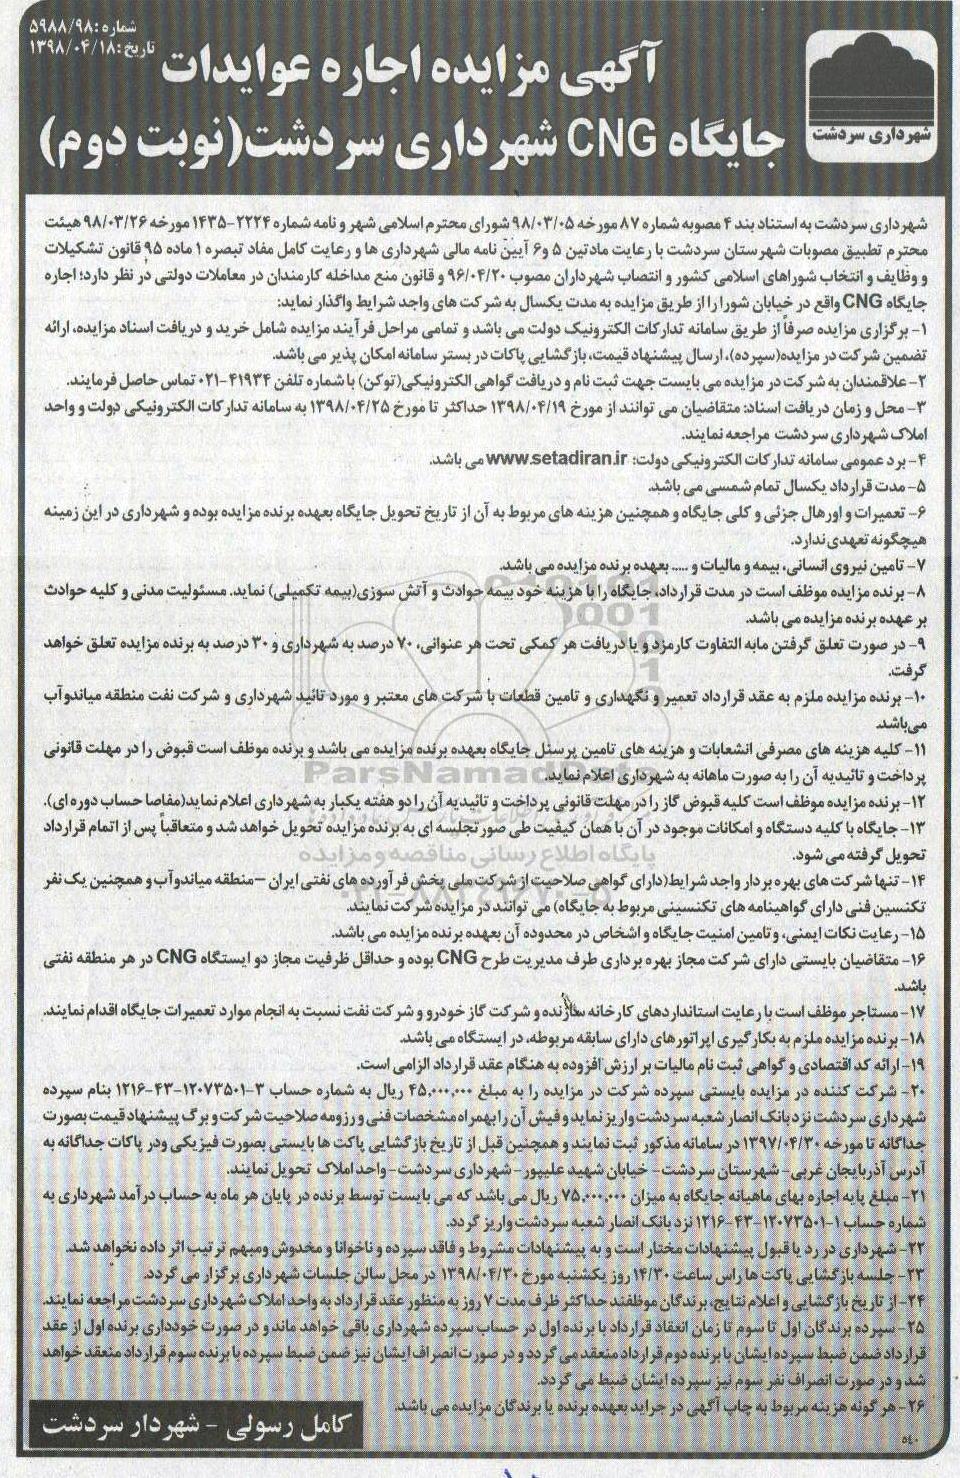 شماره: ۵۹۸۸/۹۸
تاریخ: ۱۳۹۸/۰۴/۱۸
آگهی مزایده اجاره عوایدات
جایگاه CNG شهرداری سردشت(نوبت دوم)
شهرداری سردشت
شهرداری سردشت به استناد بند ۴ مصوبه شماره ۸۷ مورخه ۹۸/۰۳/۰۵ شورای محترم اسلامی شهر و نامه شماره ۲۲۲۴-۱۴۳۵ مورخه ۹۸/۰۳/۲۶ هیئت
محترم تطبیق مصوبات شهرستان سردشت با رعایت مادتین ۵ و۶ آیین نامه مالی شهرداری ها و رعایت کامل مفاد تبصره ۱ ماده ۹۵ قانون تشکیلات
و وظایف و انتخاب شوراهای اسلامی کشور و انتصاب شهرداران مصوب ۹۶/۰۴/۲۰ و قانون منع مداخله کارمندان در معاملات دولتی در نظر دارد؛ اجاره
جایگاه CNG واقع در خیابان شورا را از طریق مزایده به مدت یکسال به شرکت های واجد شرایط واگذار نماید:
۱- برگزاری مزایده صرفاً از طریق سامانه تدارکات الکترونیک دولت می باشد و تمامی مراحل فرآیند مزایده شامل خرید و دریافت اسناد مزایده، ارائه
تضمین شرکت در مزایده(سپرده)، ارسال پیشنهاد قیمت، بازگشایی پاکات در بستر سامانه امکان پذیر می باشد.
۲- علاقمندان به شرکت در مزایده می بایست جهت ثبت نام و دریافت گواهی الکترونیکی(توکن) با شماره تلفن ۴۱۹۳۴-۰۲۱ تماس حاصل فرمایند.
۳- محل و زمان دریافت اسناد: متقاضیان می توانند از مورخ ۱۳۹۸/۰۴/۱۹ حداکثر تا مورخ ۱۳۹۸/۰۴/۲۵ به سامانه تدارکات الکترونیکی دولت و واحد
املاک شهرداری سردشت مراجعه نمایند.
۴- برد عمومی سامانه تدارکات الکترونیکی دولت: www.setadiran.ir می باشد.
۵- مدت قرارداد یکسال تمام شمسی می باشد.
۶- تعمیرات و اورهال جزئی و کلی جایگاه و همچنین هزینه های مربوط به آن از تاریخ تحویل جایگاه بعهده برنده مزایده بوده و شهرداری در این زمینه
هیچگونه تعهدی ندارد.
۷- تامین نیروی انسانی، بیمه و مالیات و ..... بعهده برنده مزایده می باشد.
۸- برنده مزایده موظف است در مدت قرارداد، جایگاه را با هزینه خود بیمه حوادث و آتش سوزی(بیمه تکمیلی) نماید. مسئولیت مدنی و کلیه حوادث
بر عهده برنده مزایده می باشد.
۹- در صورت تعلق گرفتن مابه التفاوت کارمزد و یا دریافت هر کمکی تحت هر عنوانی، ۷۰ درصد به شهرداری و ۳۰ درصد به برنده مزایده تعلق خواهد
گرفت.
۱۰- برنده مزایده ملزم به عقد قرارداد تعمیر و نگهداری و تامین قطعات با شرکت های معتبر و مورد تائید شهرداری و شرکت نفت منطقه میاندوآب
می‌باشد.
۱۱- کلیه هزینه های مصرفی انشعابات و هزینه های تامین پرسنل جایگاه بعهده برنده مزایده می باشد و برنده موظف است قبوض را در مهلت قانونی
پرداخت و تائیدیه آن را به صورت ماهانه به شهرداری اعلام نماید.
۱۲- برنده مزایده موظف است کلیه قبوض گاز را در مهلت قانونی پرداخت و تائیدیه آن را دو هفته یکبار به شهرداری اعلام نماید(مفاصا حساب دوره ای).
۱۳- جایگاه با کلیه دستگاه و امکانات موجود در آن با همان کیفیت طی صورتجلسه ای به برنده مزایده تحویل خواهد شد و متعاقباً پس از اتمام قرارداد
تحویل گرفته می شود.
۱۴- تنها شرکت های بهره بردار واجد شرایط(دارای گواهی صلاحیت از شرکت ملی پخش فرآورده های نفتی ایران –منطقه میاندوآب و همچنین یک نفر
تکنسین فنی دارای گواهینامه های تکنسینی مربوط به جایگاه) می توانند در مزایده شرکت نمایند.
۱۵- رعایت نکات ایمنی، و تامین امنیت جایگاه و اشخاص در محدوده آن بعهده برنده مزایده می باشد.
۱۶- متقاضیان بایستی دارای شرکت مجاز بهره برداری طرف مدیریت طرح CNG بوده و حداقل ظرفیت مجاز دو ایستگاه CNG در هر منطقه نفتی
باشد.
۱۷- مستاجر موظف است با رعایت استانداردهای کارخانه سازنده و شرکت گاز خودرو و شرکت نفت نسبت به انجام موارد تعمیرات جایگاه اقدام نمایند.
۱۸- برنده مزایده ملزم به بکارگیری اپراتورهای دارای سابقه مربوطه، در ایستگاه می باشد.
۱۹- ارائه کد اقتصادی و گواهی ثبت نام مالیات بر ارزش افزوده به هنگام عقد قرارداد الزامی است.
۲۰- شرکت کننده در مزایده بایستی سپرده شرکت در مزایده را به مبلغ ۴۵,۰۰۰,۰۰۰ ریال به شماره حساب ۳-۱۲۰۷۳۵۰۱-۴۳-۱۲۱۶ بنام سپرده
شهرداری سردشت نزد بانک انصار شعبه سردشت واریز نماید و فیش آن را بهمراه مشخصات فنی و رزومه صلاحیت شرکت و برگ پیشنهاد قیمت بصورت
جداگانه تا مورخه ۱۳۹۷/۰۴/۳۰ در سامانه مذکور ثبت نمایند و همچنین قبل از تاریخ بازگشایی پاکت ها بایستی بصورت فیزیکی ودر پاکات جداگانه به
آدرس آذربایجان غربی- شهرستان سردشت- خیابان شهید علیپور- شهرداری سردشت- واحد املاک تحویل نمایند.
۲۱- مبلغ پایه اجاره بهای ماهیانه جایگاه به میزان ۷۵,۰۰۰,۰۰۰ ریال می باشد که می بایست توسط برنده در پایان هر ماه به حساب درآمد شهرداری به
شماره حساب ۱-۱۲۰۷۳۵۰۱-۴۳-۱۲۱۶ نزد بانک انصار شعبه سردشت واریز گردد.
۲۲- شهرداری در رد یا قبول پیشنهادات مختار است و به پیشنهادات مشروط و فاقد سپرده و ناخوانا و مخدوش ومبهم ترتیب اثر داده نخواهد شد.
۲۳- جلسه بازگشایی پاکت ها راس ساعت ۱۴/۳۰ روز یکشنبه مورخ ۱۳۹۸/۰۴/۳۰ در محل سالن جلسات شهرداری برگزار می گردد.
۲۴- از تاریخ بازگشایی و اعلام نتایج، برندگان موظفند حداکثر ظرف مدت ۷ روز به منظور عقد قرارداد به واحد املاک شهرداری سردشت مراجعه نمایند.
۲۵- سپرده برندگان اول تا سوم تا زمان انعقاد قرارداد با برنده اول در حساب سپرده شهرداری باقی خواهد ماند و در صورت خودداری برنده اول از عقد
قرارداد ضمن ضبط سپرده ایشان با برنده دوم قرارداد منعقد می گردد و در صورت انصراف ایشان نیز ضمن ضبط سپرده با برنده سوم قرارداد منعقد خواهد
شد و در صورت انصراف نفر سوم نیز سپرده ایشان ضبط می گردد.
۲۶- هر گونه هزینه مربوط به چاپ آگهی در جراید بعهده برنده یا برندگان مزایده می باشد.
کامل رسولی - شهردار سردشت
۵۴۰
ParsNamadData
پایگاه اطلاع رسانی مناقصه و مزایده